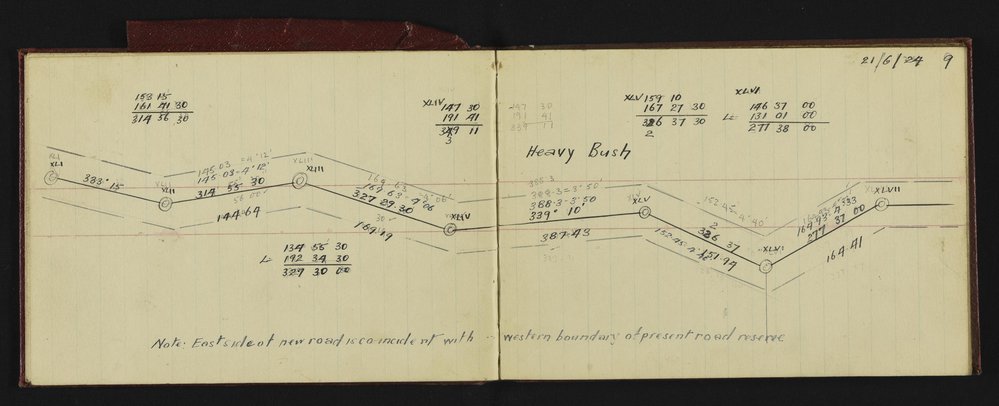 21/6/24 9
153 15
161 41 30
314 56 30
XLIV
147 30
191 41
339 11
3
147 30
191 41
339 11
XLV
159 10
167 27 30
326 37 30
2
XLVI
146 37 00
L- 131 01 00
277 38 00
Heavy Bush
XLI
XLI
333° 15
XLII
XLII
145 03 = 4° 12'
145·03-4° 12'
314 55 30
56 00
144·64
XLIII
XLIII
164·63
164 63-4° 06
327 29·30
30
XLIV
388·3
388·3=3° 50'
388·3-3° 50
339° 10'
387·43
XLV
152·45
4° 40'
2
326 37
151·94
XLVI
277 37 00
164·41
XLVII
134 56 30
L- 192 34 30
329 30 00
Note: East side of new road is coincident with western boundary of present road reserve